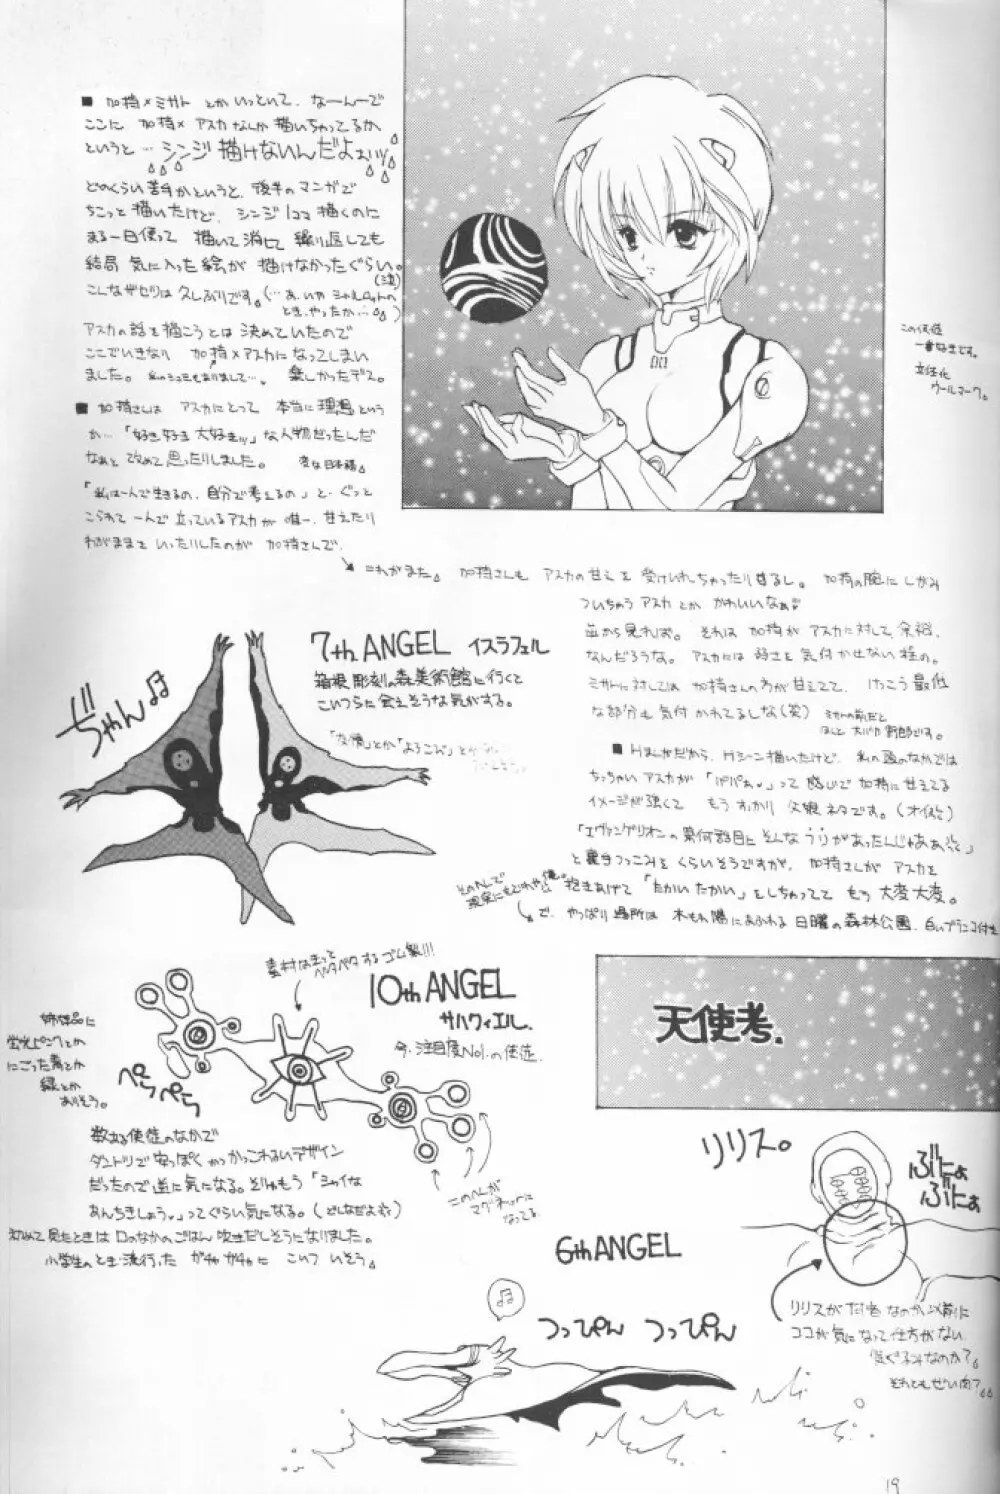 ■ 加持×ミサト とかいっといて、なーんーで
ここに 加持×アスカなんか描いちゃってるか
というと… シンジ描けないんだよぉぃッ
どのくらい苦手かというと、後半のマンガで
ちこっと描いたけど、シンジ1コマ描くのに
まる一日使って 描いて消して 繰り返しても
結局 気に入った絵が 描けなかったぐらい。(泣)
こんなザセツは久しぶりです。(…あ、いや シャルロットの
とき、やったか…)
アスカの話を描こうとは 決めていたので
ここでいきなり 加持×アスカになってしまい
ました。 私のシュミもありまして…。 楽しかったデス。
■ 加持さんは アスカにとって 本当に理想という
か…「好き好き大好きッ」な人物だったんだ
なぁと 改めて思ったりしました。 変な日本語
「私は一人で生きるの、自分で考えるの」と、ぐっと
こらえて 一人で立っているアスカが 唯一、甘えたり
わがままをいったりしたのが 加持さんで、
この使徒
一番好きです。
立体化
ウールマーク。
これがまた。 加持さんも アスカの甘えを 受けいれちゃったりするし。 加持の腕に しがみ
ついちゃう アスカとか かわいいなぁ
並から見れば。 それは 加持が アスカに対して 余裕、
なんだろうな。 アスカには 弱さを気付かせない程の。
ミサトに対しては 加持さんの方が甘えてて、けっこう最低
な部分も 気付かれてるしな(笑)
ミサトの前だと
ほんと 大バカ野郎です。
7th ANGEL イスラフェル
箱根彫刻の森美術館に行くと
こいつらに会えそうな気がする。
「友情」とか「よろこび」とか
じゃん♪
■ Hまんがだから、Hシーン描いたけど、私の頭のなかでは
ちっちゃいアスカが 「パパぁッ」って 感じで 加持に甘えてる
イメージが強くて もうすっかり 父娘ネタです。(オイ)
「エヴァンゲリオンの第何話目にそんなシーンがあったんじゃぁぁ」
と裏手つっこみをくらいそうですが、加持さんが アスカを
抱きあげて 「たかいたかい」をしちゃってて もう 大変大変。
で、やっぱり 場所は 木もれ陽にあふれる 日曜の森林公園、白いブランコ付き
素材はきっと
ペタペタするゴム製!!!
10th ANGEL
サハクィエル、
今、注目度No1.の使徒.
姉妹品に
蛍光ピンクとか
にごった青とか
緑とか
ありそう。
ぺらぺら
天使考.
数ある使徒のなかで
ダントツで 安っぽく かっこわるいデザイン
だったので逆に気になる。ぞりゃもう「シャイな
あんちきしょう」ってぐらい気になる。(どんなだよ)
初めて見たときは 口のなかのごはん 吹きだしそうになりました。
小学生のとき流行った ガチャガチャに こいついそう
このへんが
マグネットに
なってる
リリス。
ぷにょ
ぷにょ
6th ANGEL
♪♪
つっぴん つっぴん
リリスが 何者 なのか以前に
ココが 気になって 仕方がない
それともぜい肉?
19